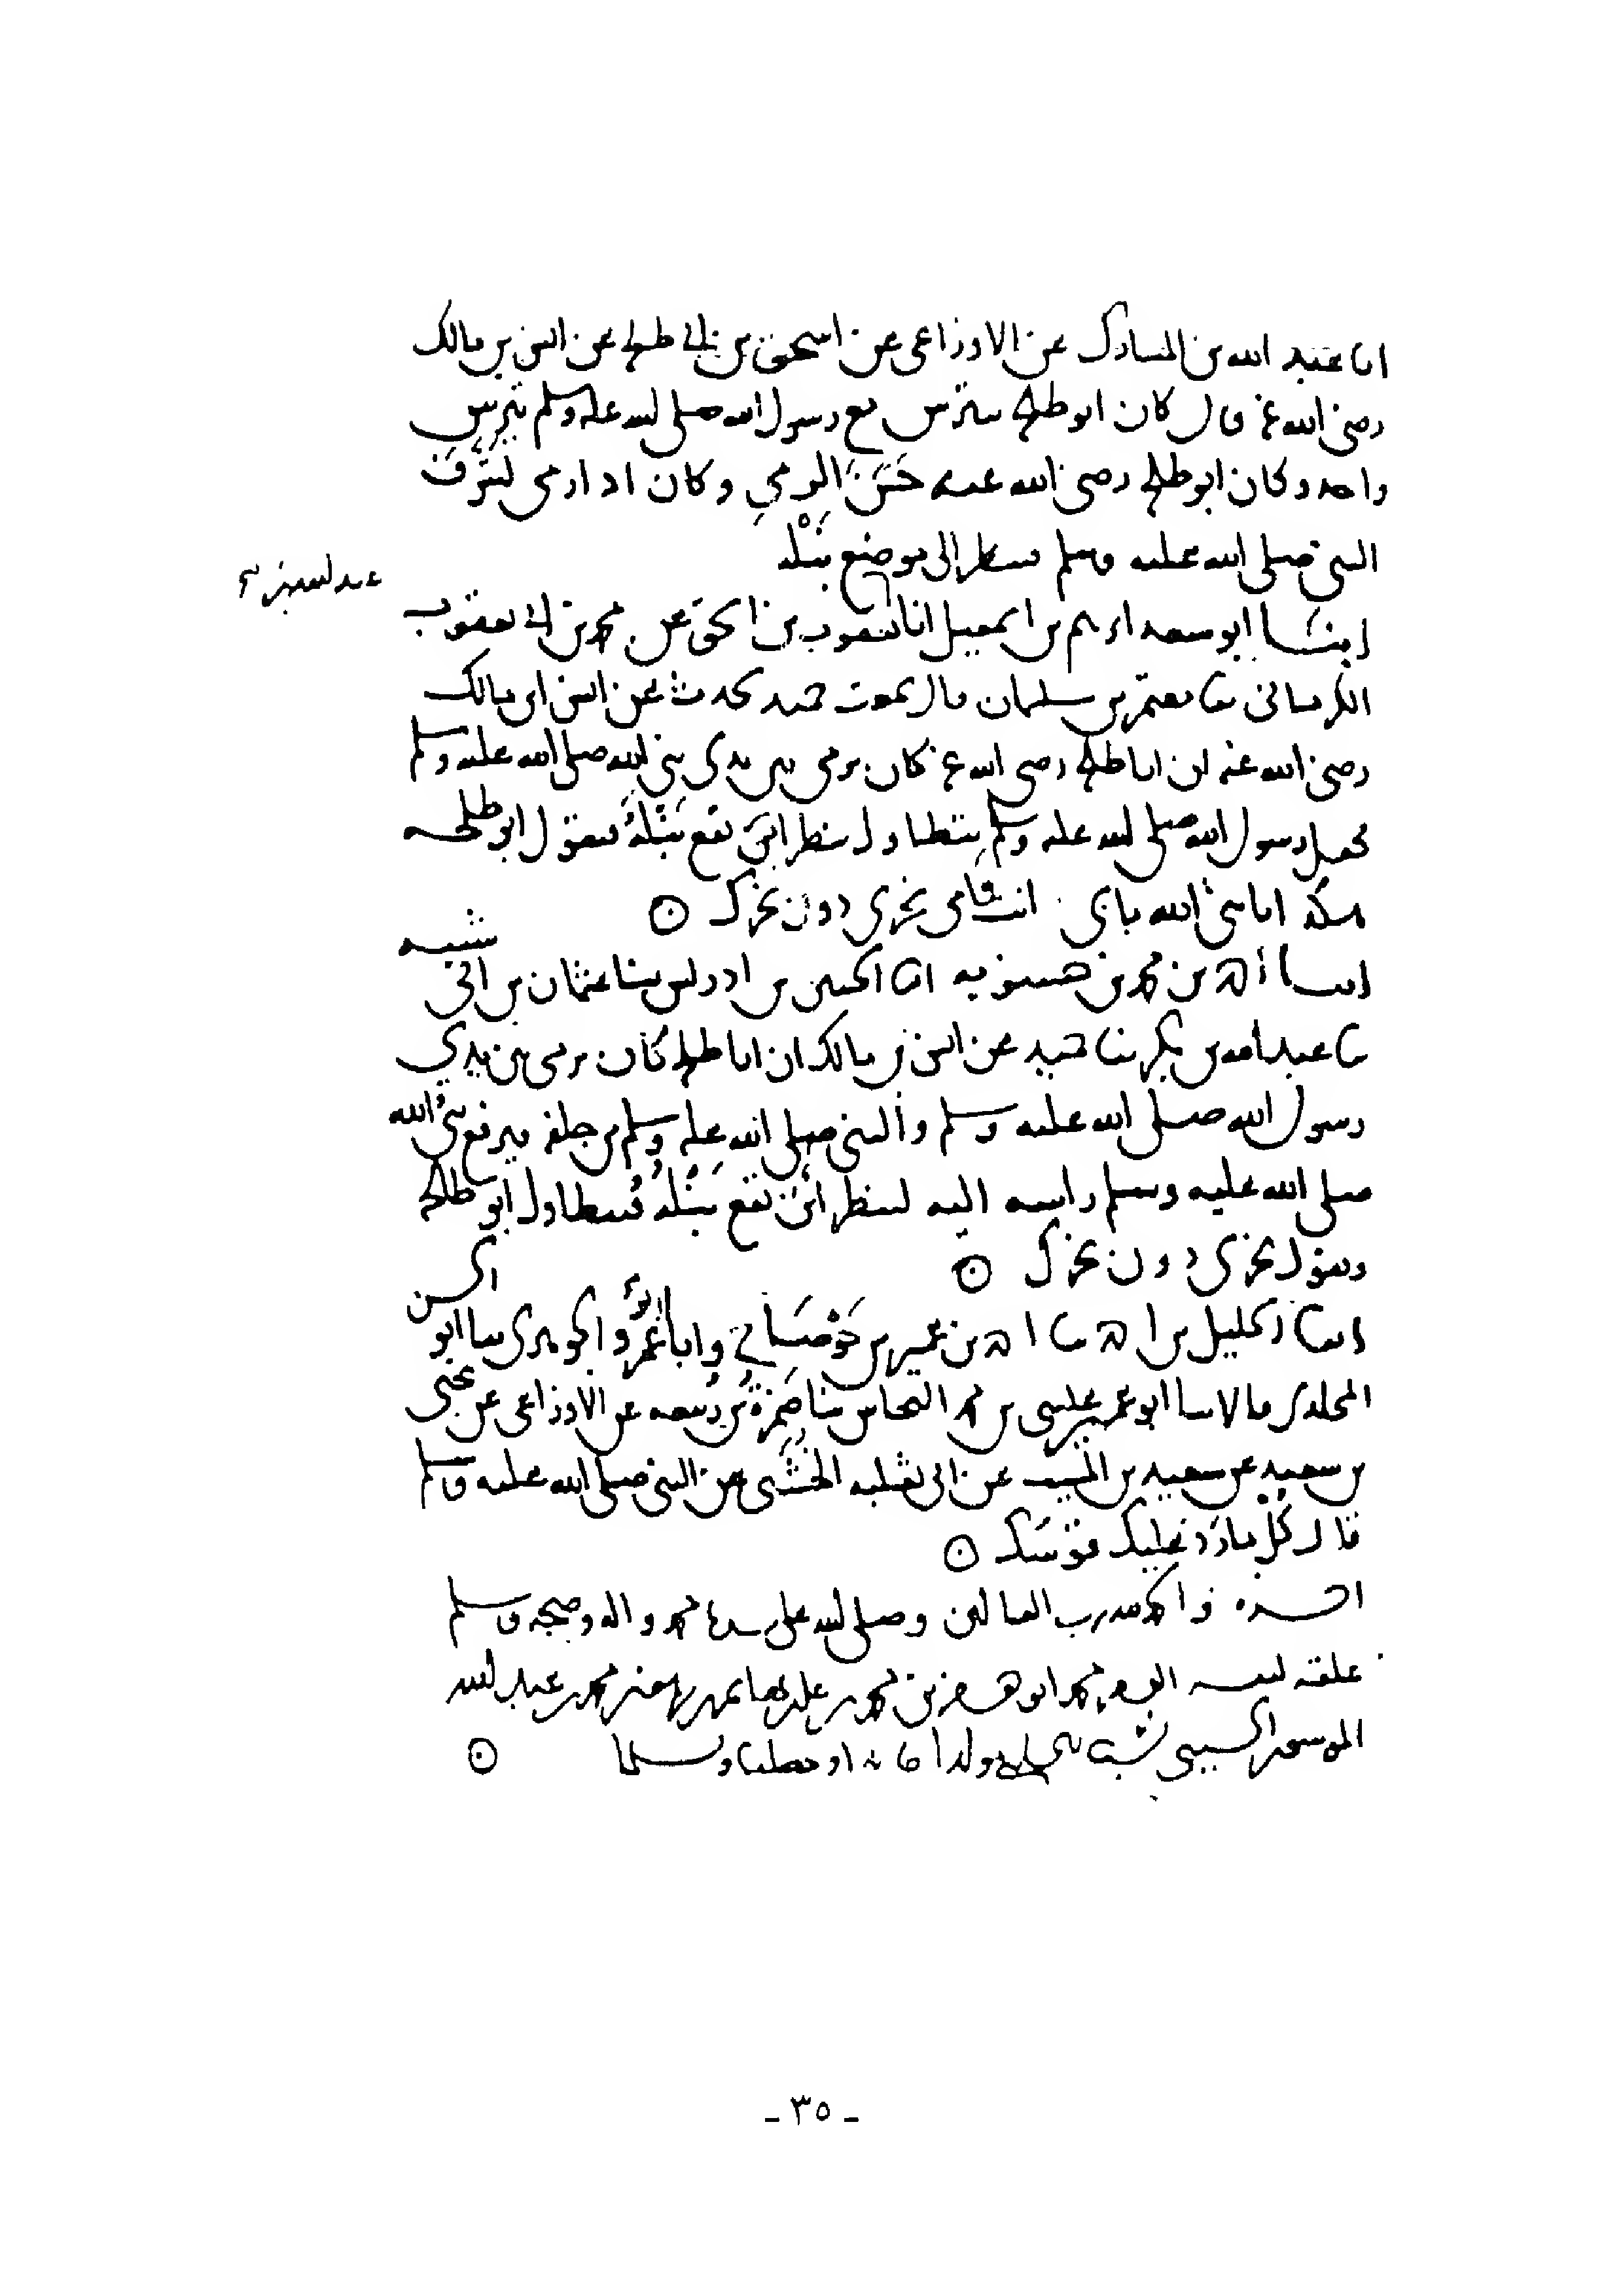 انا عبد الله بن المبارك عن الاوزاعي عن اسحق بن ابي طلحة عن انس بن مالك
رضي الله عنه قال كان ابو طلحة يتترس مع رسول الله صلى الله عليه وسلم بترس
واحد وكان ابو طلحة رضي الله عنه حَسَنَ الرمي وكان اذا رمى تشرف
النبي صلى الله عليه وسلم فينظر الى موضع نَبْله
انبئنا ابو سعد ابرهيم بن اسمعيل انا يعقوب بن اسحق عن محمد بن ابي يعقوب
الكرماني ثنا معتمر بن سليمان قال سمعت حميد يحدث عن انس ابن مالك
رضي الله عنه ان ابا طلحة رضي الله عنه كان يرمي بين يدي نبي الله صلى الله عليه وسلم
فجعل رسول الله صلى الله عليه وسلم يتطاول ينظر اين تقع نَبْلُهُ فيقول ابو طلحه
هكذا يا نبي الله بابي انت وامي نحري دون نحرك
انبئنا احمد بن محمد بن حسنويه انا الحسين بن ادريس ثنا عثمان بن ابي
شيبه
ثنا عبد الله بن بكر ثنا حميد عن انس بن مالك ان ابا طلحة كان يرمي بين يدي
رسول الله صلى الله عليه وسلم والنبي صلى الله عليه وسلم من خلفه فيرفع نبي الله
صلى الله عليه وسلم راسه اليه لينظر اين تقع نَبْلُهُ فيتطاول ابو طلحة
ويقول نحري دون نحرك
انبئنا الخليل بن احمد ثنا احمد بن عمير بن جَوْصَا وابا عمرو الجوهري ثنا ابو الحسن
المخلدي قالا ثنا ابو عمير عيسى بن محمد النحاس ثنا ضَمْرَةُ بن ربيعه عن الاوزاعي عن يحيى
بن سعيد عن سعيد بن المسيب عن ابي ثعلبه الخُشَني عن النبي صلى الله عليه وسلم
قال كُلْ ما رَدَّ عليك قوسك
اخره والحمد لله رب العالمين وصلى الله على سيدنا محمد واله وصحبه وسلم
علقه لنفسه محمد بن محمد عبد الله
الحسيني حامدا ومصليا ومسلما
- ٣٥ -